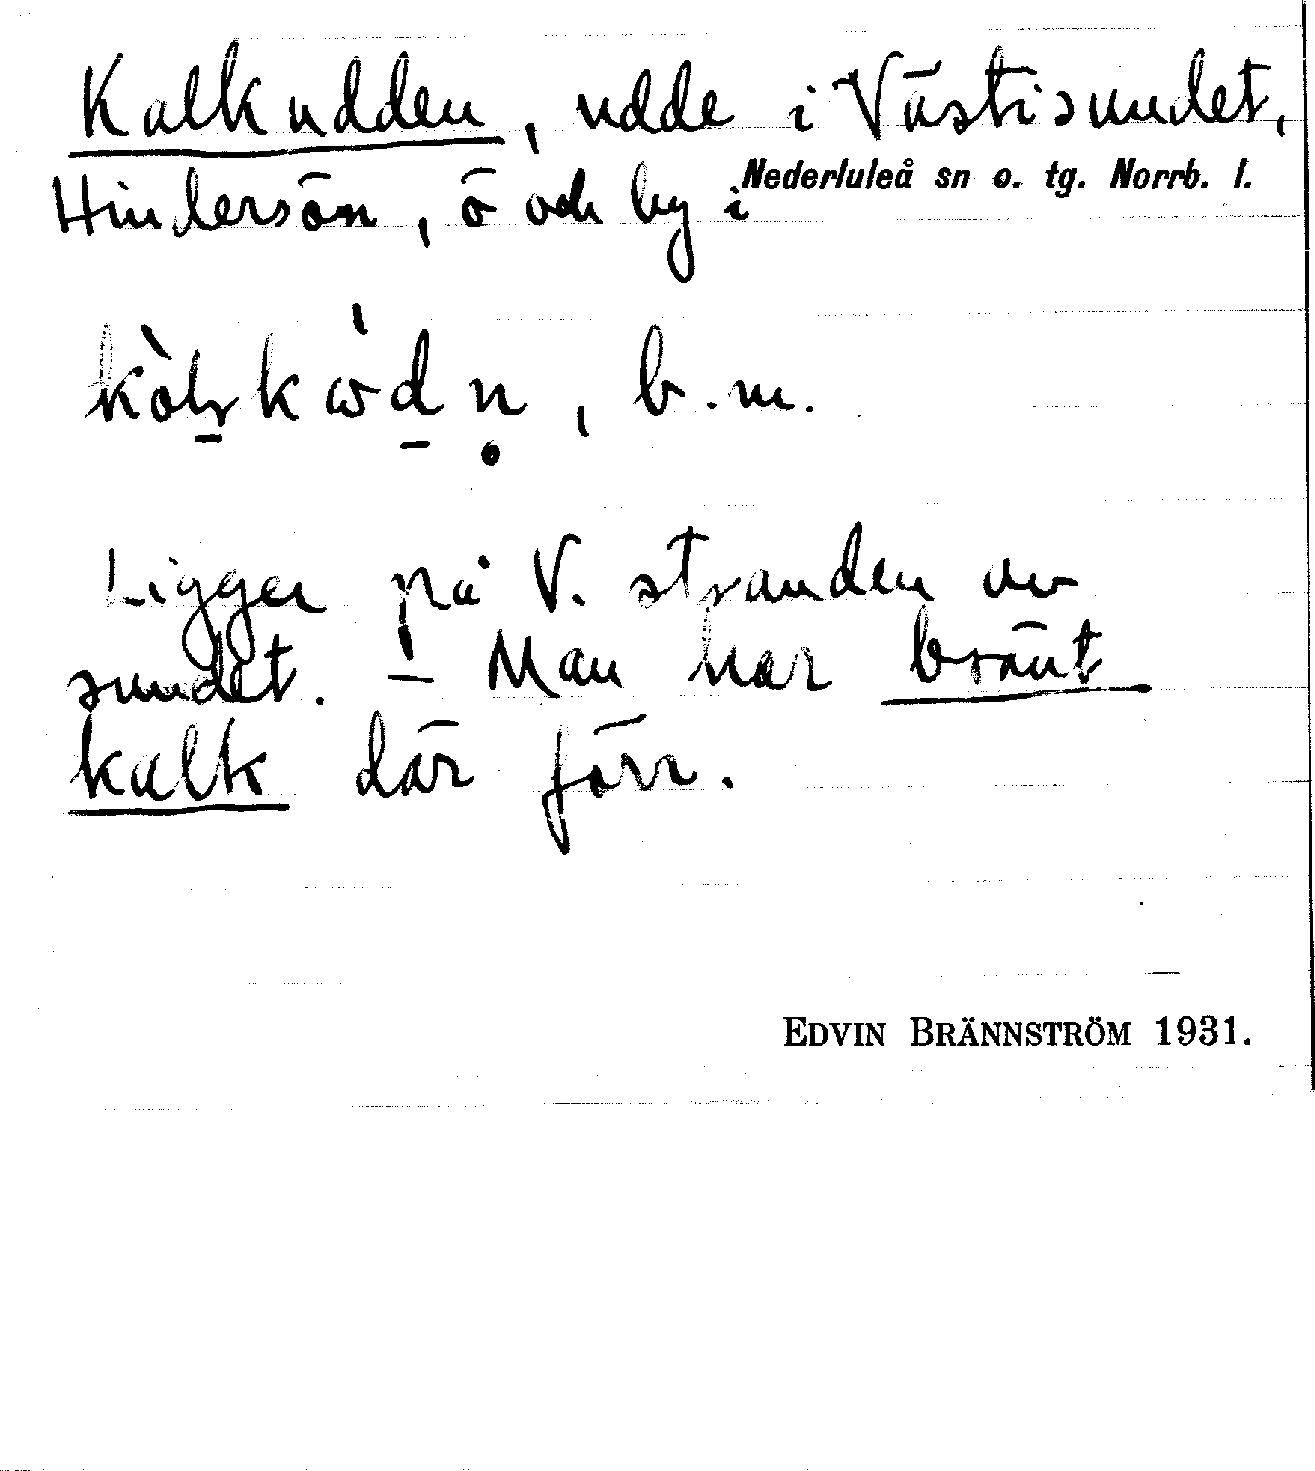 Kalkudden, udde i Västisundet,
Hindersön, ö och by i Nederluleå sn o. tg. Norrb. l.
b.m.
Ligger på V. stranden av
sundet. – Man har bränt
kalk där förr.
EDVIN BRÄNNSTRÖM 1931.